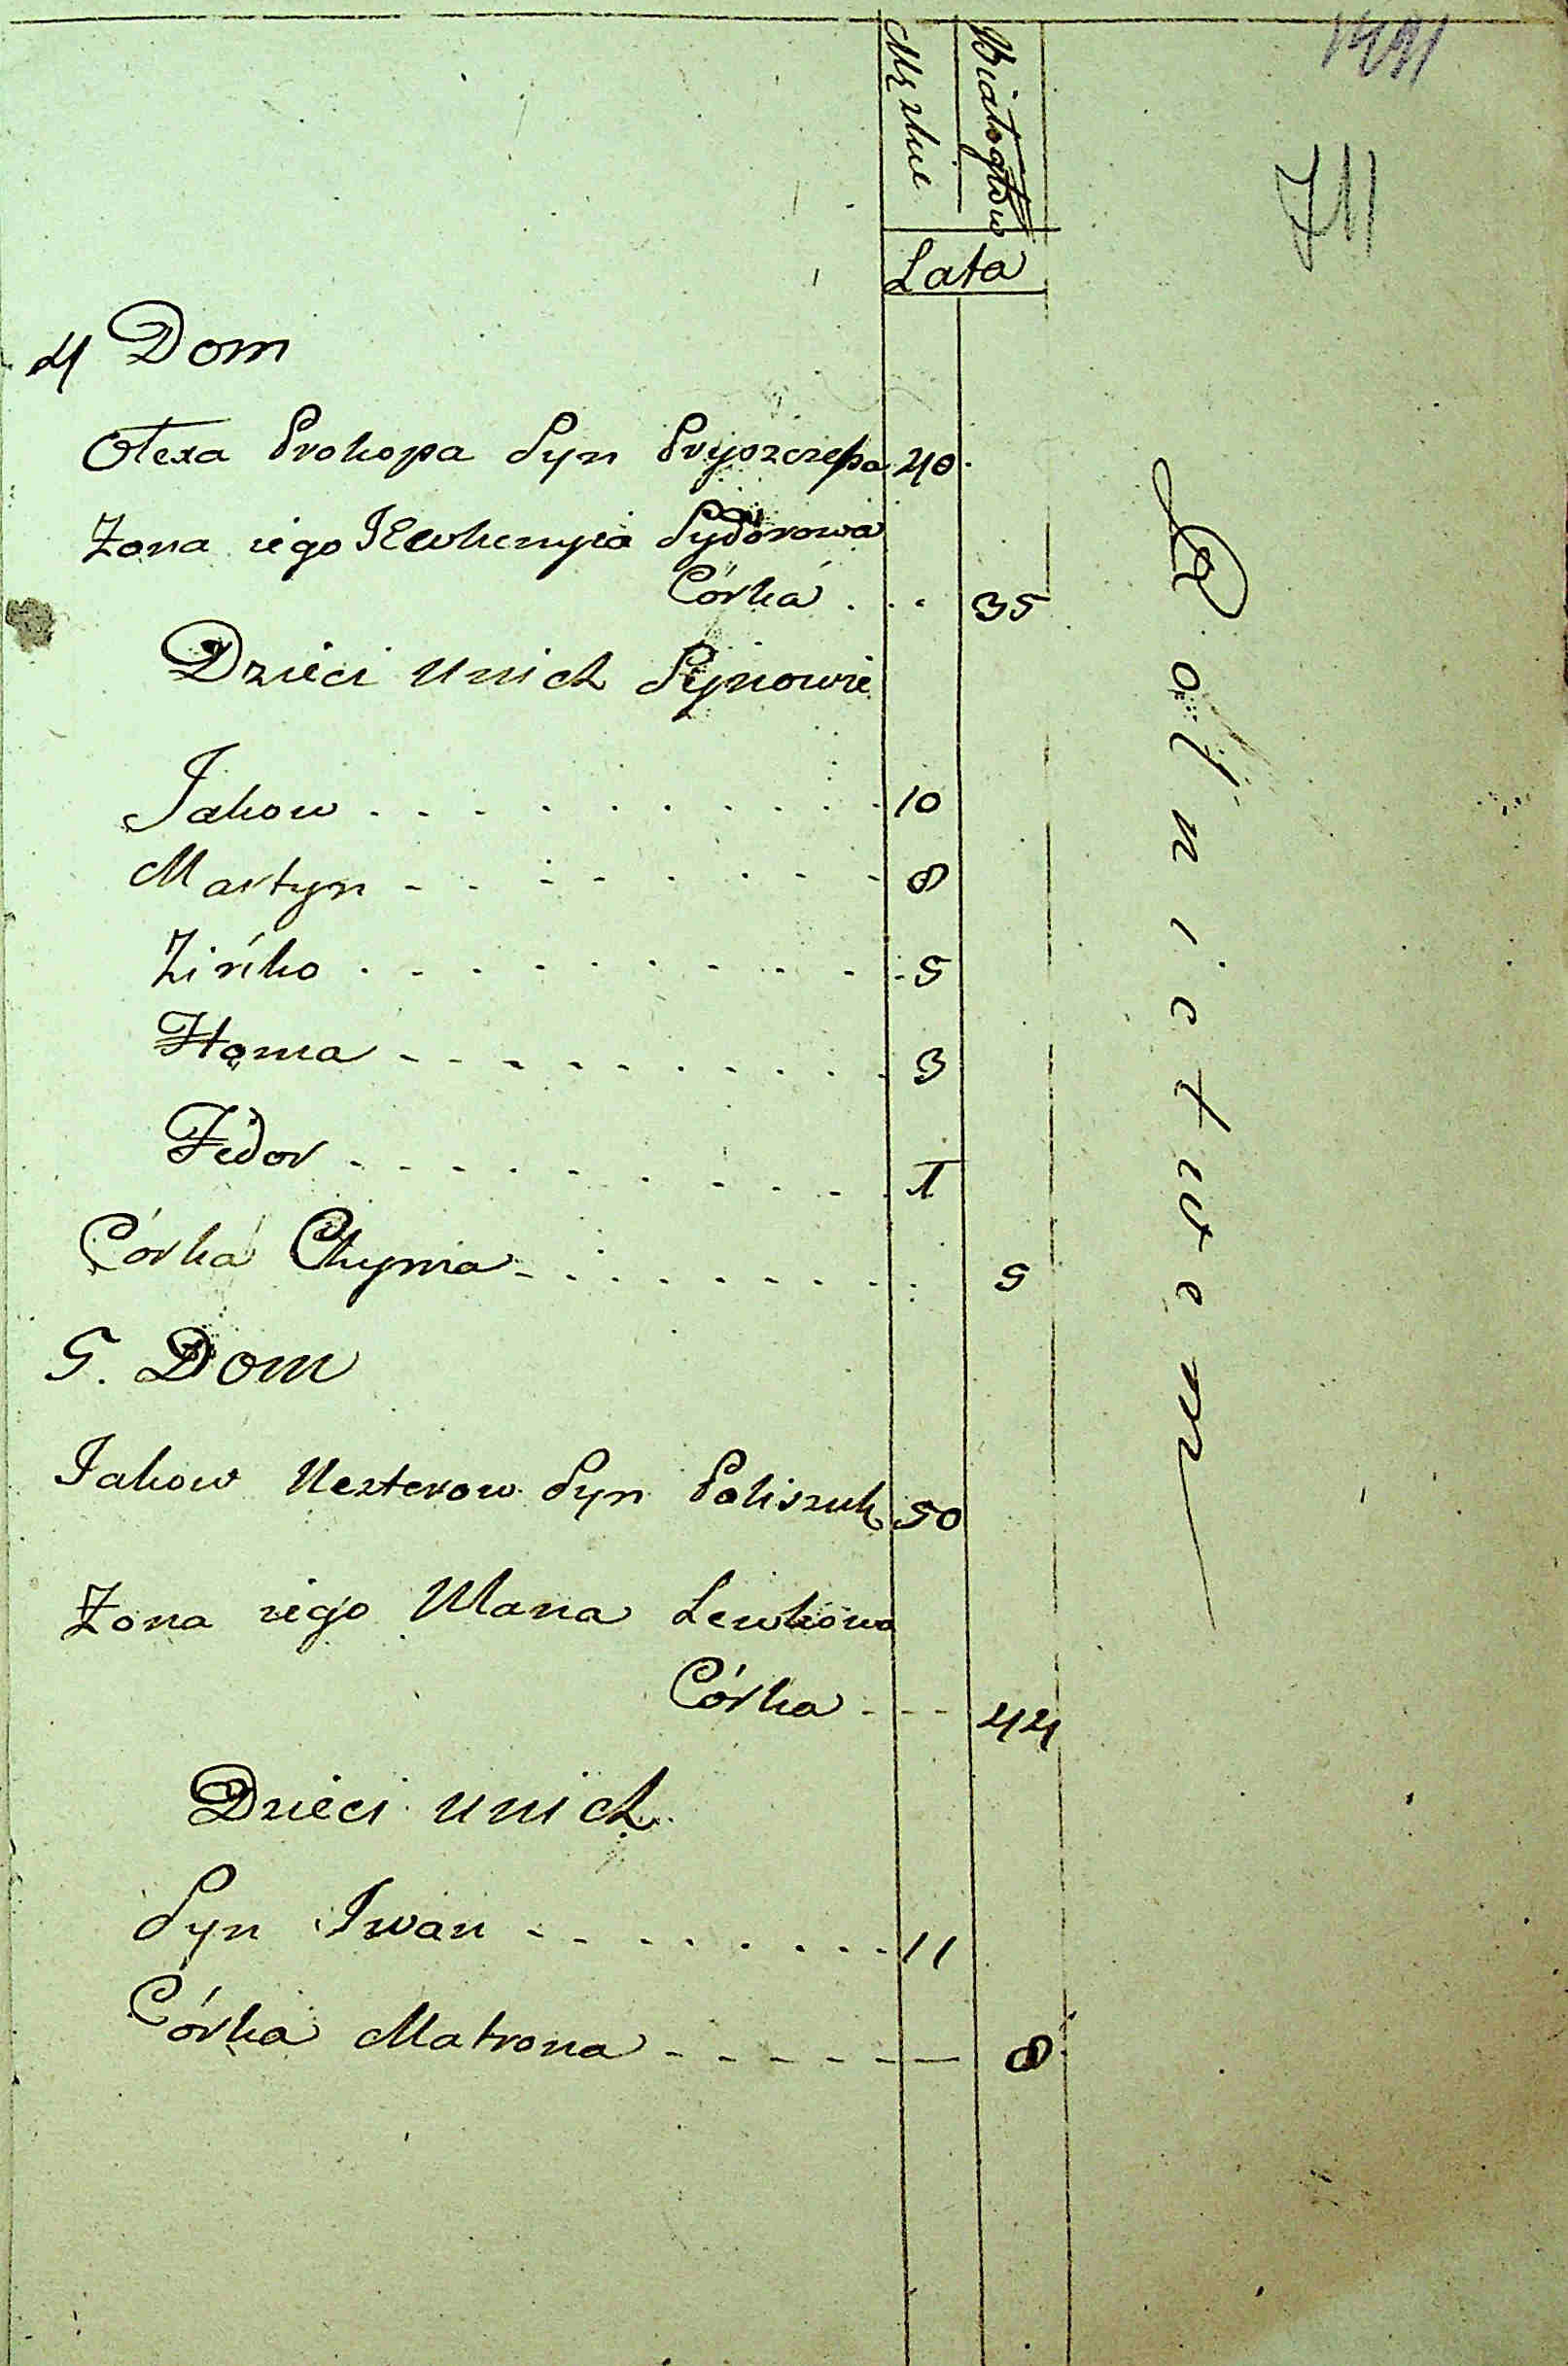 Męzkie
Białogłow
Lata
711
4 Dom
Olexa Prokopa Syn Pryszczepa 40
Zona iego Jewhenyia Sydorowa
Córka . . . 35
Dzieci unich Synowie
Jakow . . . . . . . . . . 10
Martyn - . . . . . . . . 8
Zińko . . . . . . . . . . 5
Homa - - - - . . . . . 3
Fedor - - - - . . . . . 1
Córka Chyma - . . . . . . . . 5
5. Dom
Jakow Nesterow Syn Poliszuk 50
Zona iego Ulana Lewkowa
Córka - - - 44
Dzieci unich
Syn Iwan - - - . . . . . 11
Córka Matrona - - - - - - — 8
Rolnictwem